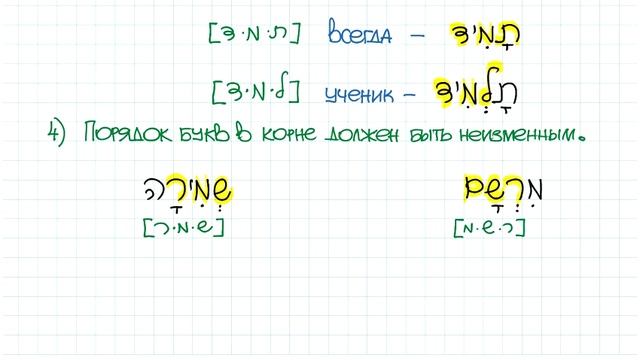 [ת·מ·ד] всегда – תָמִיד
[ל·מ·ד] ученик – תָלְמִיד
4) Порядок букв в корне должен быть неизменным.
שְמִירָה מִרְשָם
[ש·מ·ר] [ר·ש·מ]